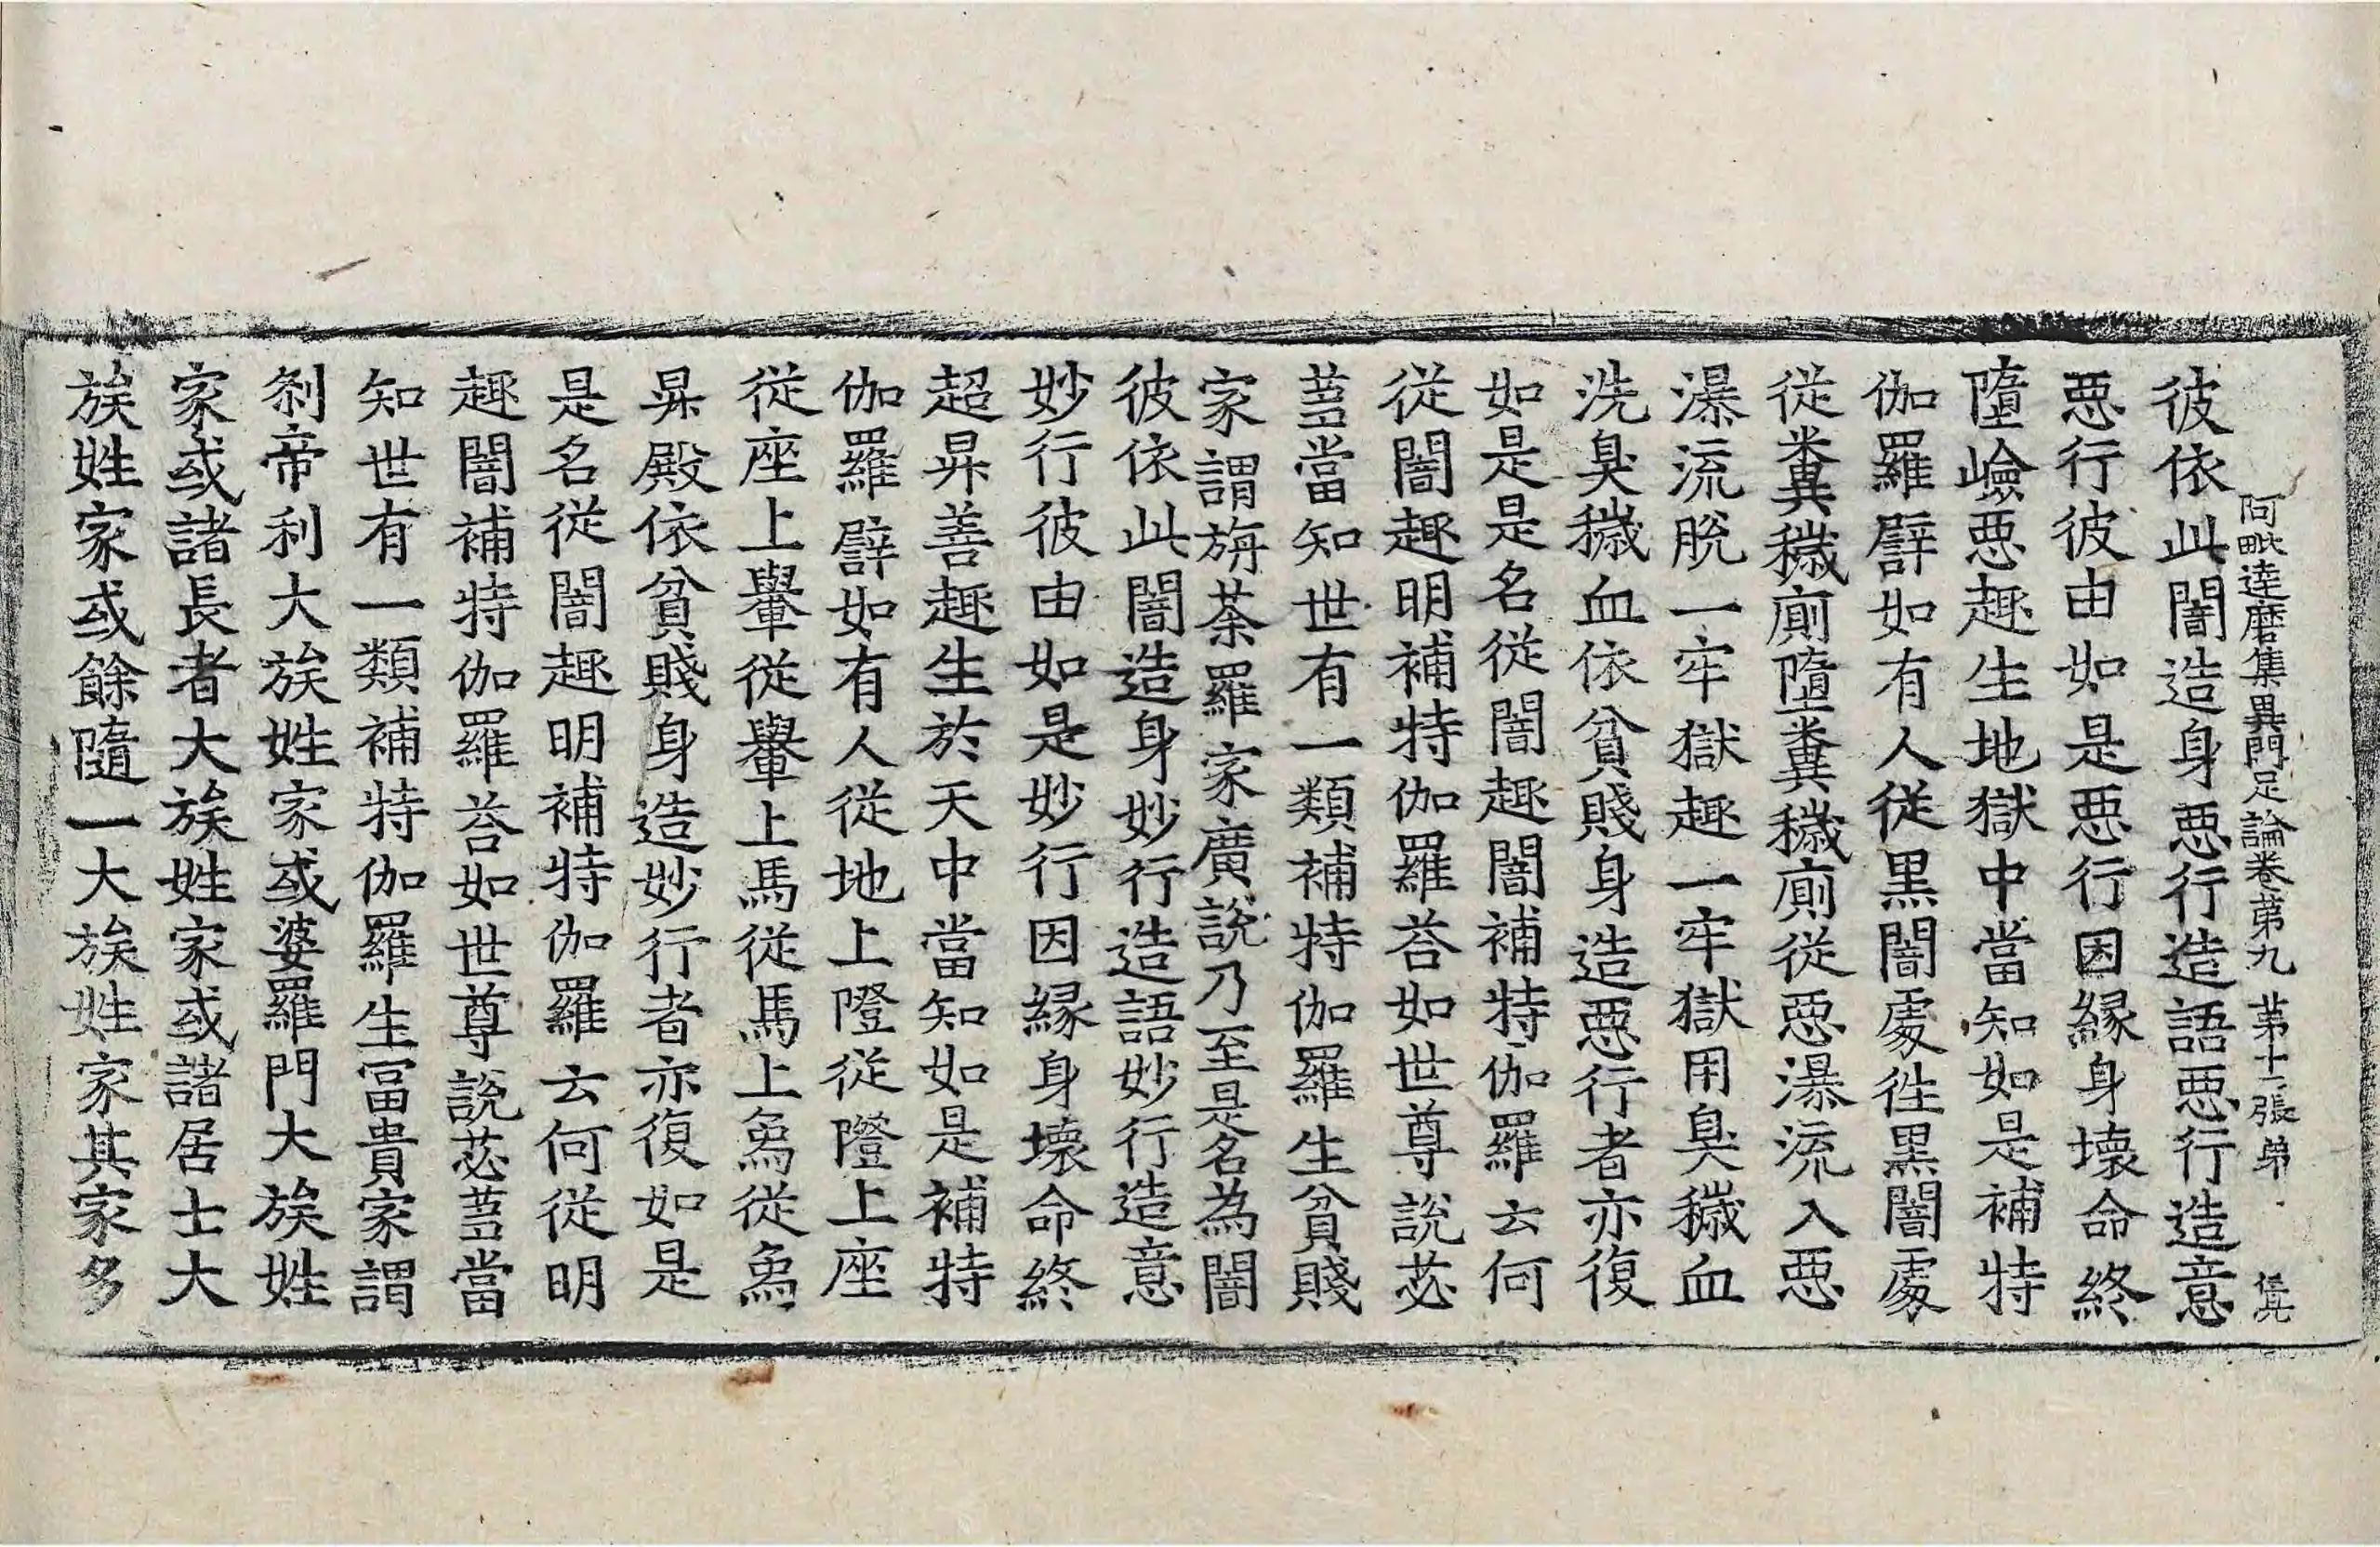 阿毗達磨集異門足論卷第九　第十一張　弟
彼依此闇造身惡行造語惡行造意
惡行彼由如是惡行因緣身壞命終
墮嶮惡趣生地獄中當知如是補特
伽羅譬如有人從黑闇處徃黑闇處
從糞穢廁墮糞穢廁從惡瀑流入惡
瀑流脫一牢獄趣一牢獄用臭穢血
洗臭穢血依貧賤身造惡行者亦復
如是是名從闇趣闇補特伽羅云何
從闇趣明補特伽羅荅如世尊說苾
蒭當知世有一類補特伽羅生貧賤
家謂旃荼羅家廣說乃至是名為闇
彼依此闇造身妙行造語妙行造意
妙行彼由如是妙行因緣身壞命終
超昇善趣生於天中當知如是補特
伽羅譬如有人從地上隥從隥上座
從座上轝從轝上馬從馬上象從象
昇殿依貧賤身造妙行者亦復如是
是名從闇趣明補特伽羅云何從明
趣闇補特伽羅荅如世尊說苾蒭當
知世有一類補特伽羅生冨貴家謂
刹帝利大族姓家或婆羅門大族姓
家或諸長者大族姓家或諸居士大
族姓家或餘隨一大族姓家其家多